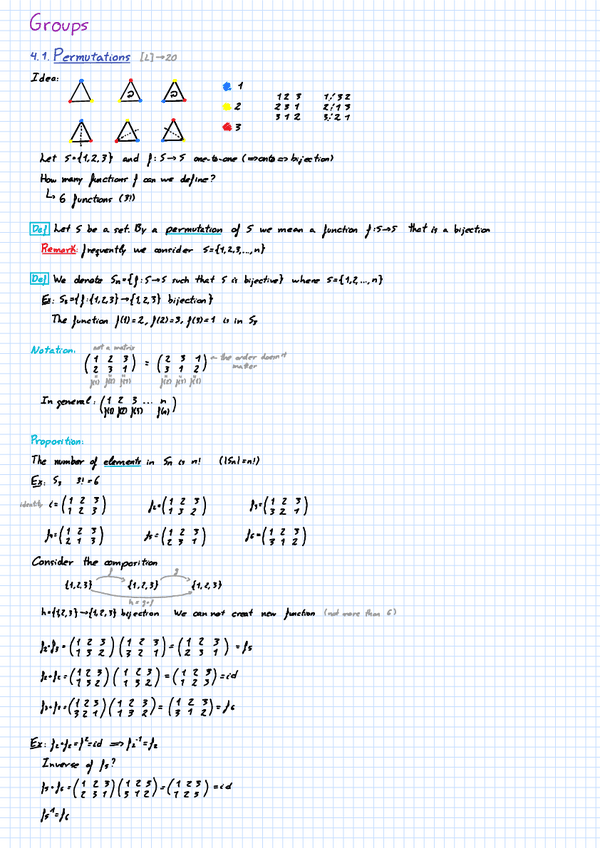 Groups
4.1. Permutations [L]→20
Idea:
1
2
3
1 2 3
2 3 1
3 1 2
1 3 2
2 1 3
3 2 1
Let S={1,2,3} and f: S→S one-to-one (⇔onto⇔bijection)
How many functions f can we define?
↳ 6 functions (3!)
Def Let S be a set. By a permutation of S we mean a function f:S→S that is a bijection
Remark: frequently we consider S={1,2,3,...,n}
Def We denote Sn={f:S→S such that S is bijective} where S={1,2,...,n}
Ex: S3={f:{1,2,3}→{1,2,3} bijection}
The function f(1)=2, f(2)=3, f(3)=1 is in S3
not a matrix
Notation: (1 2 3 / 2 3 1) = (2 3 1 / 3 1 2) the order doesn't matter
f(1) f(2) f(3) f(2) f(3) f(1)
In general: (1 2 3 ... n / f(1) f(2) f(3) f(n))
Proposition:
The number of elements in Sn is n! (|Sn|=n!)
Ex: S3 3!=6
identity i=(1 2 3 / 1 2 3) f2=(1 2 3 / 1 3 2) f3=(1 2 3 / 3 2 1)
f4=(1 2 3 / 2 1 3) f5=(1 2 3 / 2 3 1) f6=(1 2 3 / 3 1 2)
Consider the composition
f g
{1,2,3} {1,2,3} {1,2,3}
h=g∘f
h={1,2,3}→{1,2,3} bijection We can not creat new function (not more than 6)
f2∘f3=(1 2 3 / 1 3 2)(1 2 3 / 3 2 1)=(1 2 3 / 2 3 1)=f5
f2∘f2=(1 2 3 / 1 3 2)(1 2 3 / 1 3 2)=(1 2 3 / 1 2 3)=id
f3∘f2=(1 2 3 / 3 2 1)(1 2 3 / 1 3 2)=(1 2 3 / 3 1 2)=f6
Ex: f2∘f2=f²=id ⇒ f2⁻¹=f2
Inverse of f5?
f5∘f6=(1 2 3 / 2 3 1)(1 2 3 / 3 1 2)=(1 2 3 / 1 2 3)=id
f5⁻¹=f6